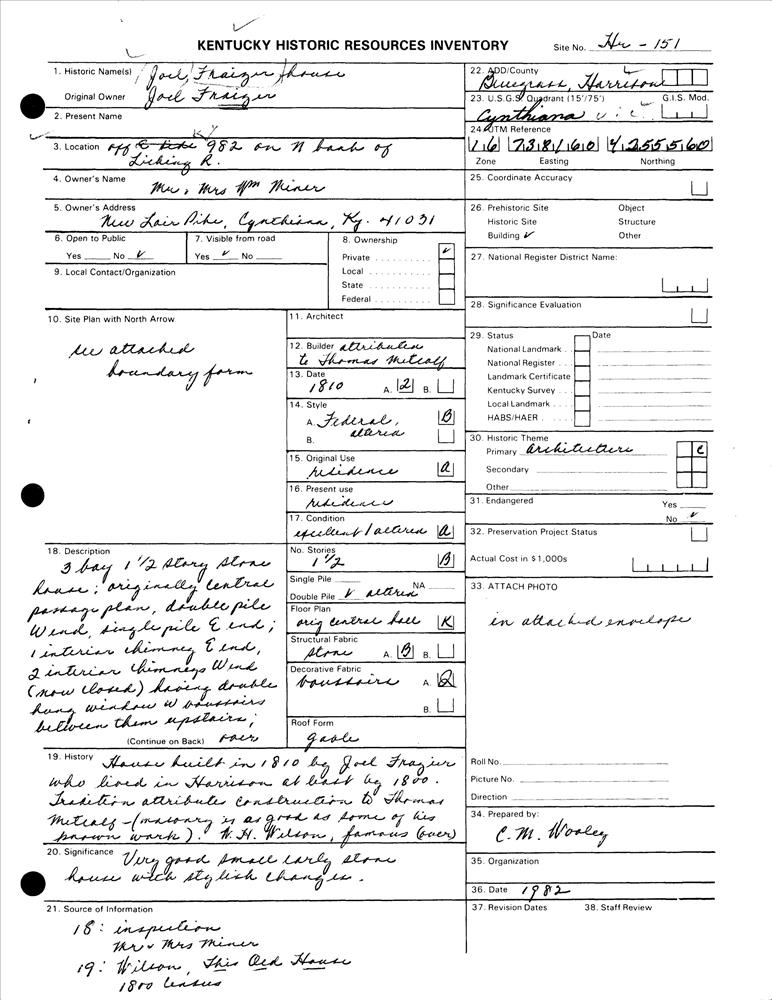 KENTUCKY HISTORIC RESOURCES INVENTORY
Site No. Hr - 151
1. Historic Name(s) Joel Fraizer house
Original Owner Joel Fraizer
2. Present Name
KY
3. Location off 982 on N bank of
Licking R.
4. Owner's Name
Mr. Mrs Wm Miner
5. Owner's Address
New Lair Pike, Cynthiana, Ky. 41031
6. Open to Public
Yes No ✓
7. Visible from road
Yes ✓ No
8. Ownership
Private ✓
Local
State
Federal
9. Local Contact/Organization
10. Site Plan with North Arrow
see attached
boundary form
11. Architect
12. Builder attributed
to Thomas Metcalf
13. Date
1810 A. 2 B.
14. Style
A. Federal, B
B. altered
15. Original Use
residence a
16. Present use
residence
17. Condition
excellent/altered a
18. Description
3 bay 1 1/2 story stone
house; originally central
passage plan, double pile
W end, single pile E end;
1 interior chimney E end,
2 interior chimneys W end
(now closed) having double
hung window w voussoirs
between them upstairs;
(Continue on Back) over
No. Stories
1 1/2 B
Single Pile NA
Double Pile ✓ altered
Floor Plan
orig central hall K
Structural Fabric
stone A. B B.
Decorative Fabric
voussoirs A. Q
B.
Roof Form
gable
19. History House built in 1810 by Joel Frazier
who lived in Harrison at least by 1800.
Tradition attributes construction to Thomas
Metcalf - (masonry is as good as some of his
known work). W. H. Wilson, famous (over)
20. Significance Very good small early stone
house with stylish changes.
21. Source of Information
18: inspection
Mr & Mrs Miner
19: Wilson, This Old House
1800 Census
22. ADD/County
Bluegrass, Harrison
23. U.S.G.S. Quadrant (15'/75') G.I.S. Mod.
Cynthiana
24. UTM Reference
16 738160 4255560
Zone Easting Northing
25. Coordinate Accuracy
26. Prehistoric Site Object
Historic Site Structure
Building ✓ Other
27. National Register District Name:
28. Significance Evaluation
29. Status Date
National Landmark
National Register
Landmark Certificate
Kentucky Survey
Local Landmark
HABS/HAER
30. Historic Theme
Primary architecture C
Secondary
Other
31. Endangered Yes
No ✓
32. Preservation Project Status
Actual Cost in $1,000s
33. ATTACH PHOTO
in attached envelope
Roll No.
Picture No.
Direction
34. Prepared by:
C. M. Wooley
35. Organization
36. Date 1982
37. Revision Dates 38. Staff Review